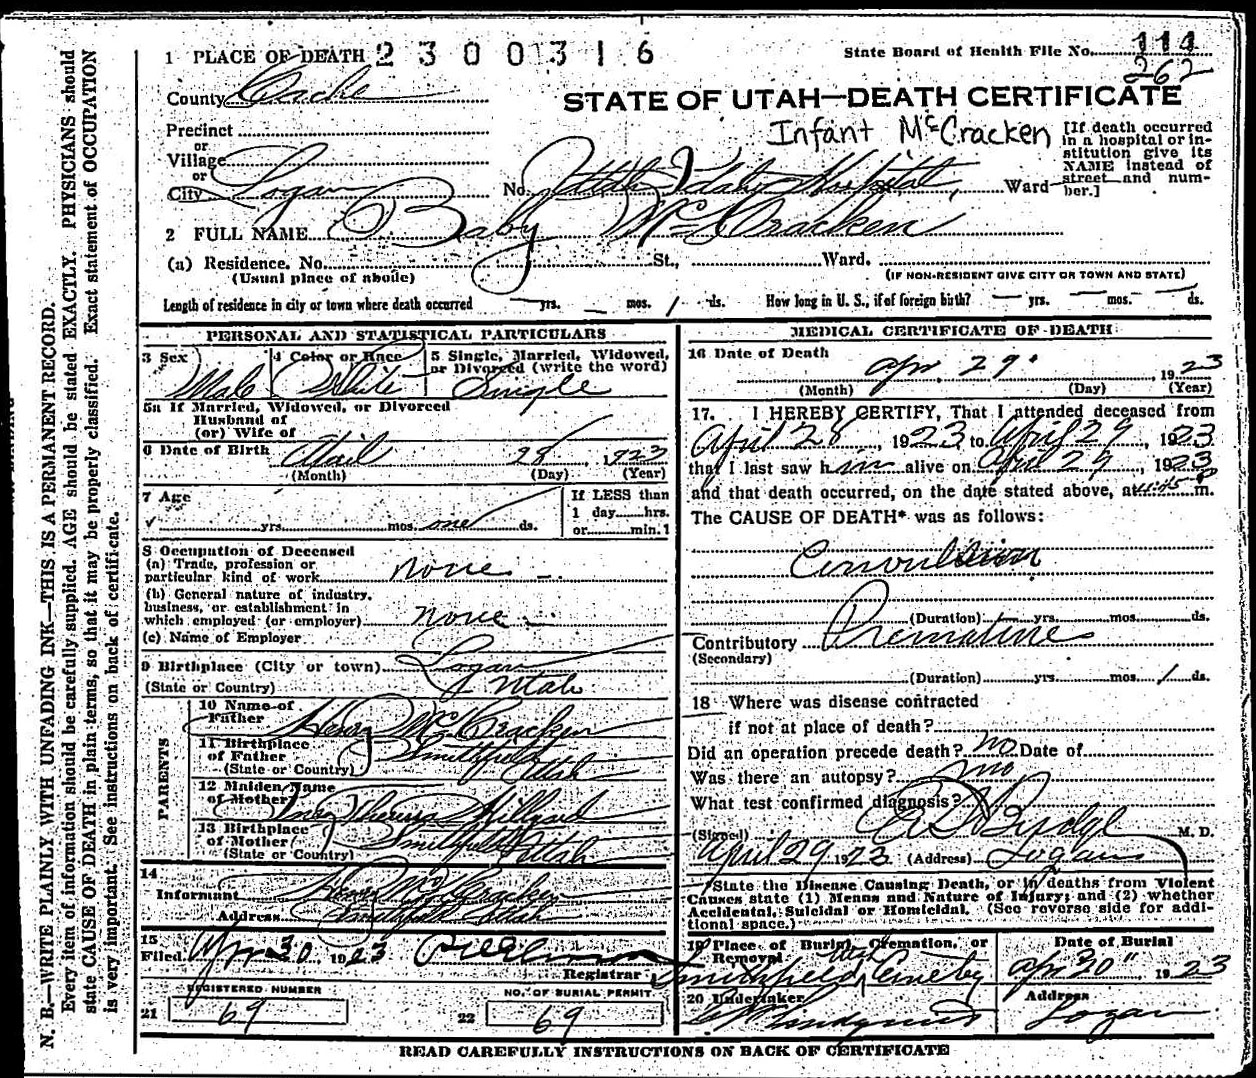 1 PLACE OF DEATH 2300316
State Board of Health File No. 114
262
County Cache
STATE OF UTAH—DEATH CERTIFICATE
Infant McCracken
Precinct
or
Village
or
City Logan
No. Utah Idaho Hospital, Ward
[If death occurred
in a hospital or in-
stitution give its
NAME instead of
street and num-
ber.]
2 FULL NAME Baby McCracken
(a) Residence. No. St., Ward.
(Usual place of abode) (IF NON-RESIDENT GIVE CITY OR TOWN AND STATE)
Length of residence in city or town where death occurred — yrs. — mos. 1 ds. How long in U. S., if of foreign birth? — yrs. — mos. — ds.
PERSONAL AND STATISTICAL PARTICULARS
3 Sex Male
4 Color or Race White
5 Single, Married, Widowed,
or Divorced (write the word)
Single
5a If Married, Widowed, or Divorced
Husband of
(or) Wife of
6 Date of Birth April 28 1923
(Month) (Day) (Year)
7 Age
yrs. mos. one ds.
If LESS than
1 day hrs.
or min.
8 Occupation of Deceased
(a) Trade, profession or
particular kind of work none —
(b) General nature of industry,
business, or establishment in
which employed (or employer) none —
(c) Name of Employer
9 Birthplace (City or town) Logan
(State or Country) Utah
PARENTS
10 Name of
Father Henry McCracken
11 Birthplace
of Father Smithfield
(State or Country) Utah
12 Maiden Name
of Mother Hillyard
13 Birthplace
of Mother Smithfield
(State or Country) Utah
14
Informant Henry McCracken
Address Smithfield Utah
15
Filed Apr 30 1923
Registrar
REGISTERED NUMBER
21 69
NO. OF BURIAL PERMIT
22 69
MEDICAL CERTIFICATE OF DEATH
16 Date of Death
Apr. 29 1923
(Month) (Day) (Year)
17. I HEREBY CERTIFY, That I attended deceased from
April 28, 1923 to April 29, 1923
that I last saw him alive on April 29, 1923
and that death occurred, on the date stated above, at 11:45 P m.
The CAUSE OF DEATH* was as follows:
Convulsion
(Duration) yrs. mos. ds.
Contributory Premature
(Secondary)
(Duration) yrs. mos. 1 ds.
18 Where was disease contracted
if not at place of death?
Did an operation precede death? no Date of
Was there an autopsy? no
What test confirmed diagnosis?
(Signed) Budge M. D.
April 29 1923 (Address) Logan
*State the Disease Causing Death, or in deaths from Violent
Causes state (1) Means and Nature of Injury; and (2) whether
Accidental, Suicidal or Homicidal. (See reverse side for addi-
tional space.)
19 Place of Burial, Cremation, or
Removal
Smithfield Utah Cemetery
Date of Burial
Apr 30" 1923
20 Undertaker
Lindquist
Address
Logan
READ CAREFULLY INSTRUCTIONS ON BACK OF CERTIFICATE
N. B.—WRITE PLAINLY WITH UNFADING INK—THIS IS A PERMANENT RECORD.
Every item of information should be carefully supplied. AGE should be stated EXACTLY. PHYSICIANS should
state CAUSE OF DEATH in plain terms, so that it may be properly classified. Exact statement of OCCUPATION
is very important. See instructions on back of certificate.